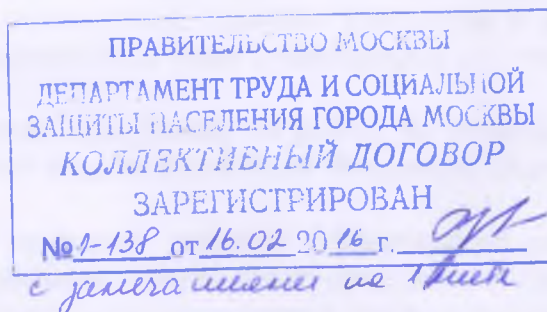 ПРАВИТЕЛЬСТВО МОСКВЫ
ДЕПАРТАМЕНТ ТРУДА И СОЦИАЛЬНОЙ
ЗАЩИТЫ НАСЕЛЕНИЯ ГОРОДА МОСКВЫ
КОЛЛЕКТИВНЫЙ ДОГОВОР
ЗАРЕГИСТРИРОВАН
№ 1-138 от 16.02 2016 г.
с замечаниями на 1 листе